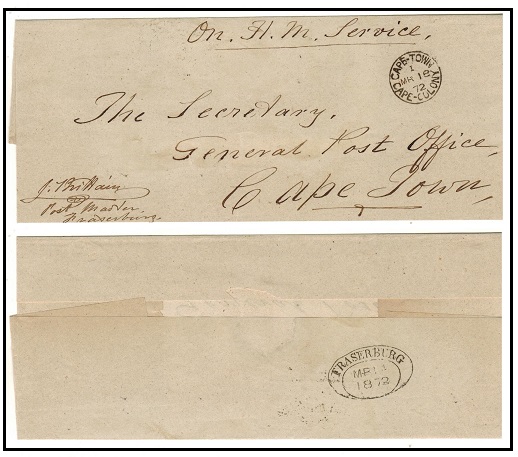 On. H. M. Service.
CAPE-TOWN
1
MR 18
72
CAPE-COLONY
The Secretary.
General Post Office,
Cape Town,
J. Brittain
Post Master
Fraserburg.
FRASERBURG
MR 14
1872